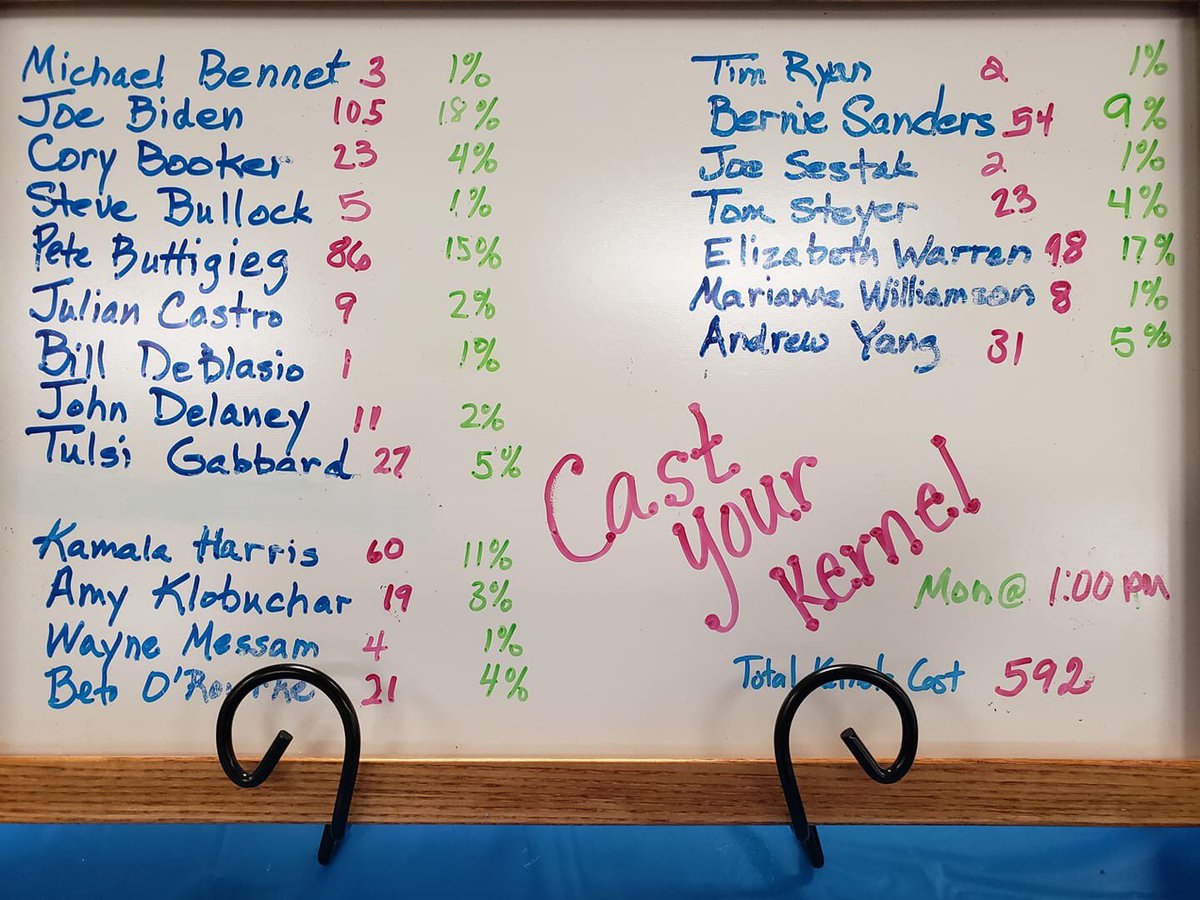 Michael Bennet 3 1%
Joe Biden 105 18%
Cory Booker 23 4%
Steve Bullock 5 1%
Pete Buttigieg 86 15%
Julian Castro 9 2%
Bill DeBlasio 1 1%
John Delaney 11 2%
Tulsi Gabbard 27 5%
Kamala Harris 60 11%
Amy Klobuchar 19 3%
Wayne Messam 4 1%
Beto O'Rourke 21 4%
Tim Ryan 2 1%
Bernie Sanders 54 9%
Joe Sestak 2 1%
Tom Steyer 23 4%
Elizabeth Warren 98 17%
Marianne Williamson 8 1%
Andrew Yang 31 5%
Cast
your
Kernel
Mon@ 1:00 pm
Total Cast 592